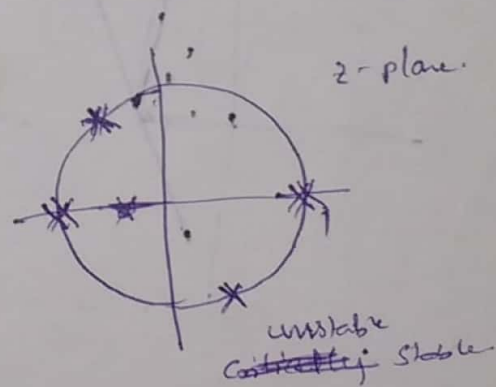 z-plane.
1
unstable
Critically stable